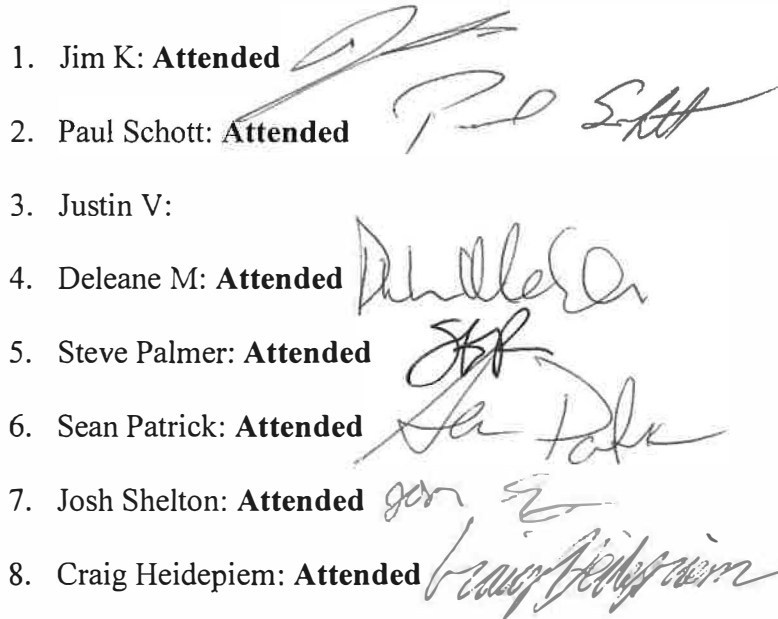 1. Jim K: Attended
2. Paul Schott: Attended
3. Justin V:
4. Deleane M: Attended
5. Steve Palmer: Attended
6. Sean Patrick: Attended
7. Josh Shelton: Attended
8. Craig Heidepiem: Attended Craig Heidepriem